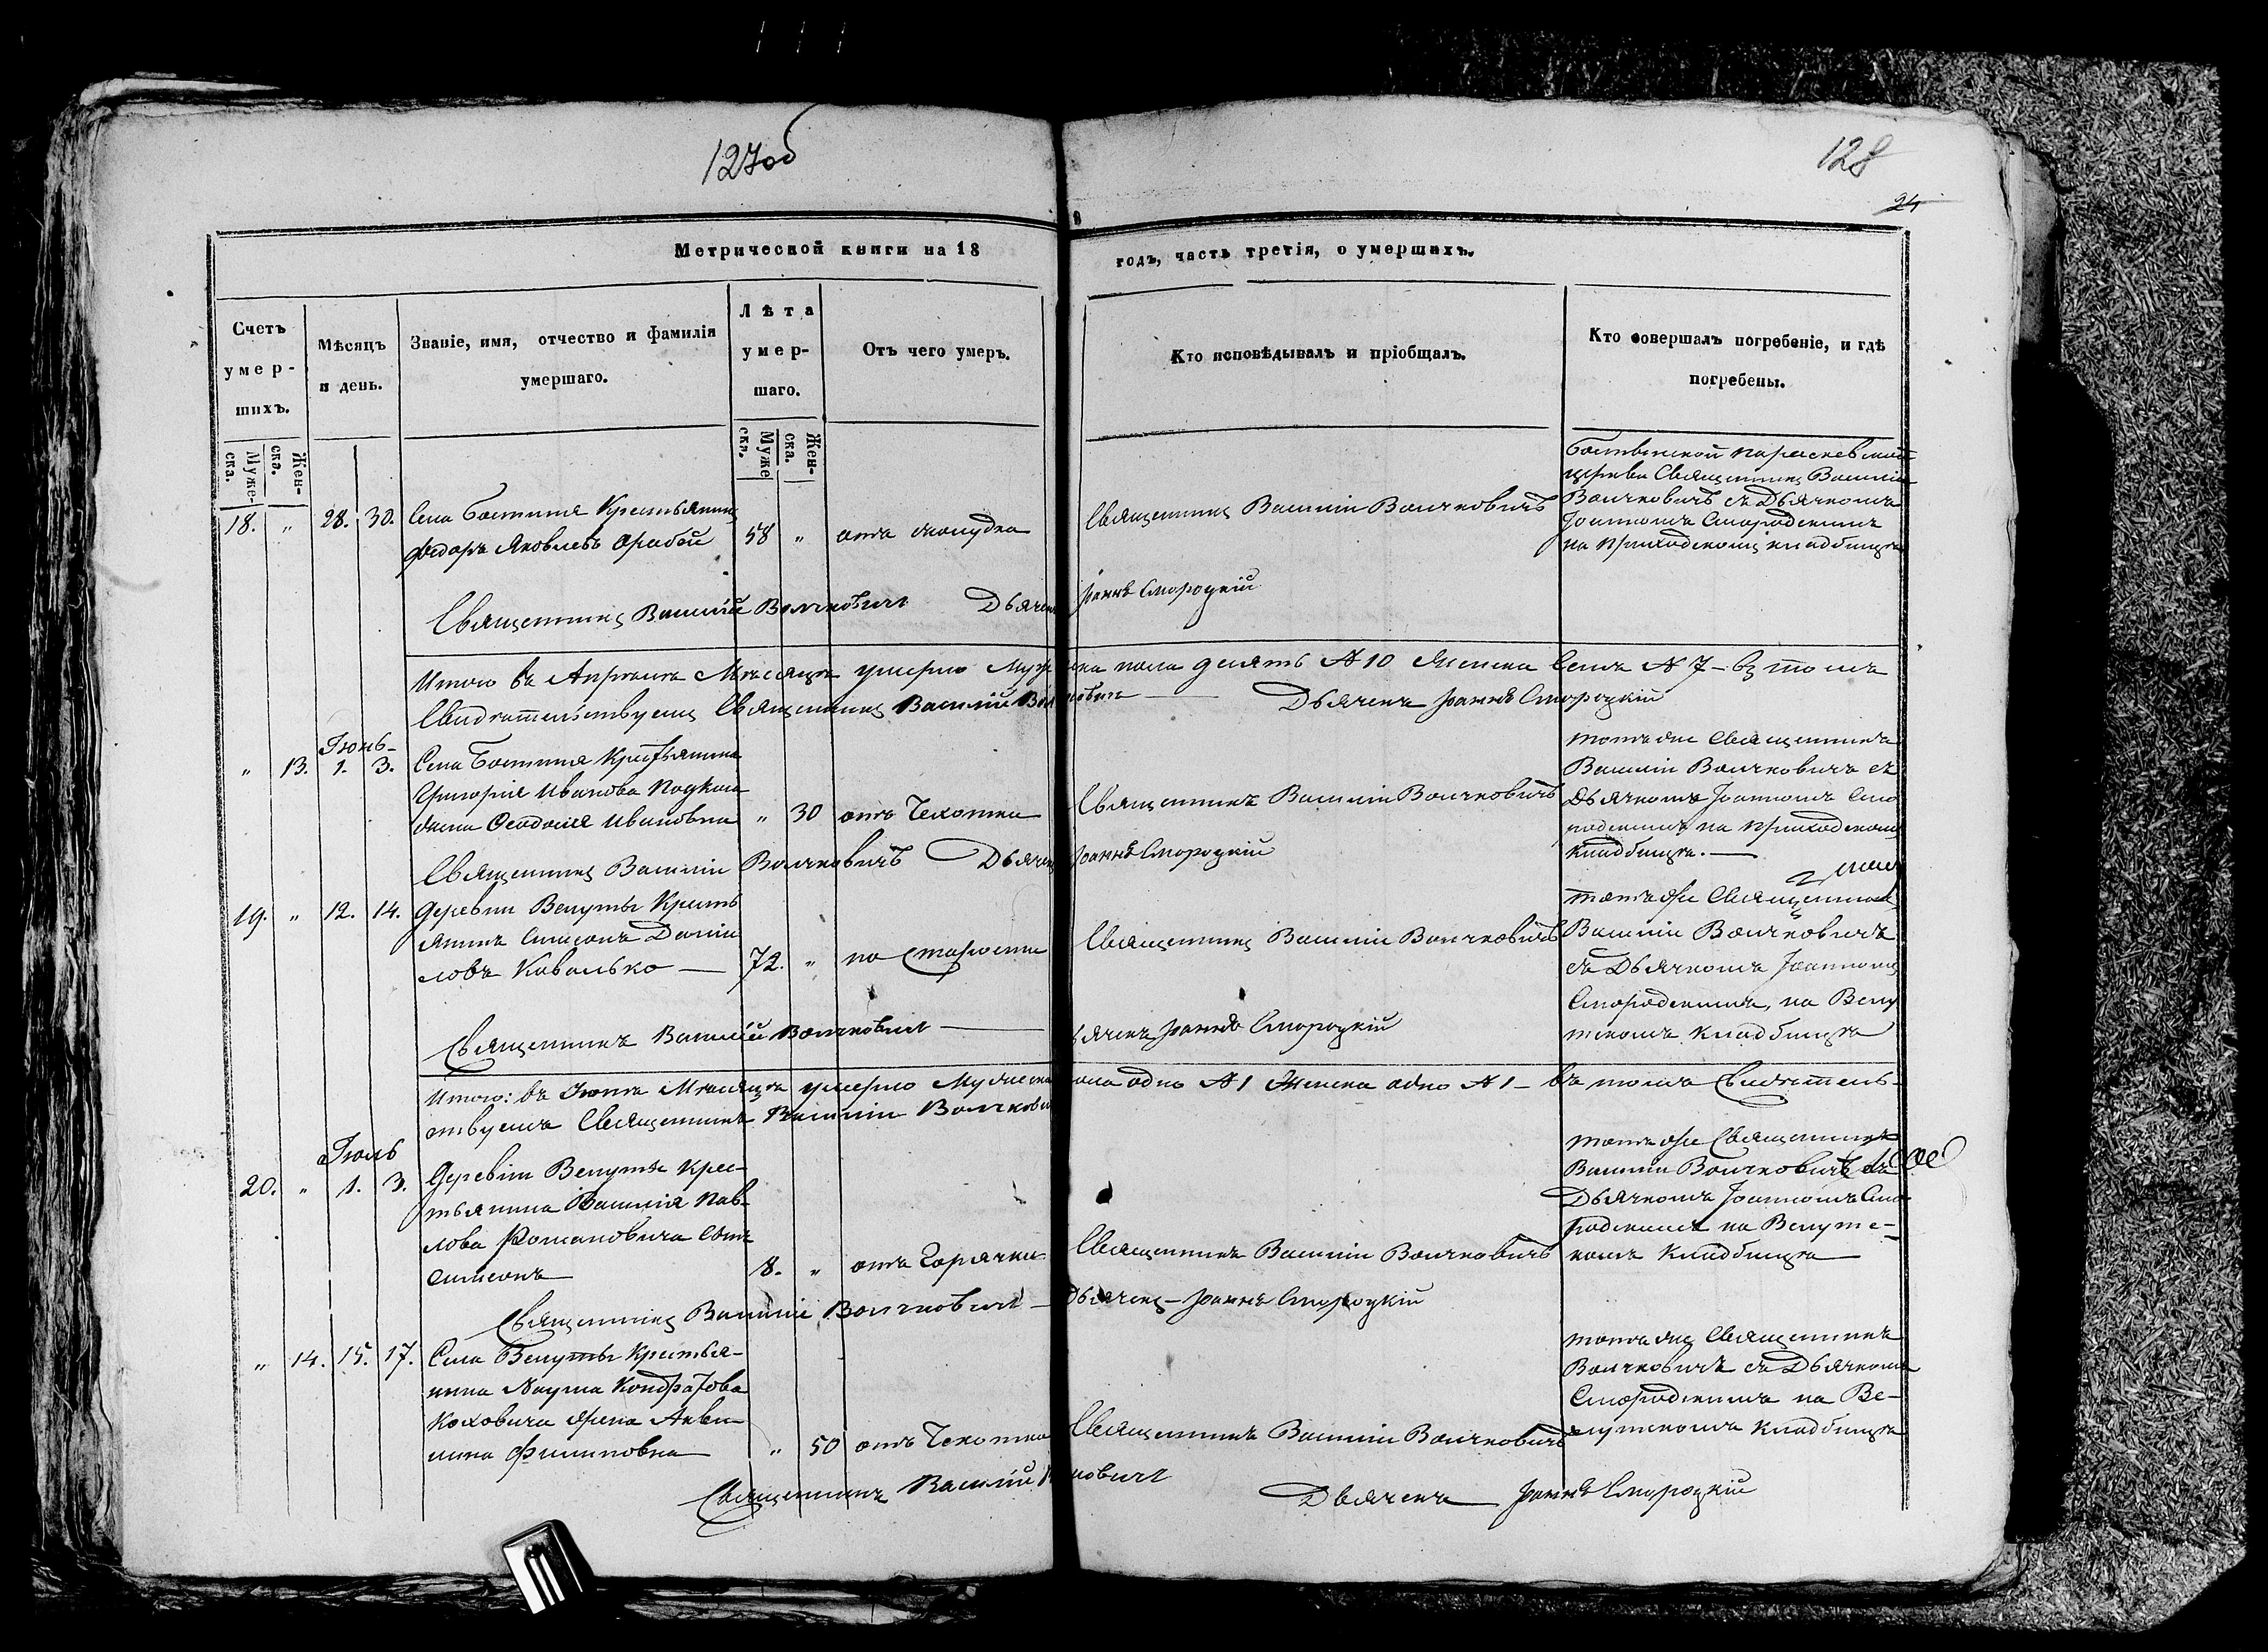 127об
128
24
Метрической книги на 18 годъ, часть третія, о умершихъ.
Счетъ умер-шихъ.
Мѣсяцъ и день.
Званіе, имя, отчество и фамилія умершаго.
Лѣта умер-шаго.
Отъ чего умеръ.
Кто исповѣдывалъ и пріобщалъ.
Кто совершалъ погребеніе, и гдѣ погребены.
Муже-ска.
Жен-ска.
Муже ска.
Жен-ска.
18. " 28. 30.
Села Бостыня Крестьянинъ
Федоръ Яковлевъ
58 "
отъ
Священникъ Василій Волчковичъ
церкви Священникъ Василій
Волчковичъ съ Дьячкомъ
Іоанномъ Смородскимъ
на приходскомъ кладбищѣ
Священникъ Василій Волчковичъ Дьячекъ Іоаннъ Смородскій
Итого въ Апрѣлѣ Мѣсяцѣ умерло Мужеска пола десять № 10 Женска семь № 7 - въ томъ
Свидѣтельствуемъ Священникъ Василій Волчковичъ — Дьячекъ Іоаннъ Смородскій
Іюнь
" 13. 1. 3.
Села Бостыня Крестьянина
Григорія Иванова
жена Ѳеодосія Ивановна
" 30
отъ Чахотки
Священникъ Василій Волчковичъ
тотъ же Священникъ
Василій Волчковичъ съ
Дьячкомъ Іоанномъ Смо
родскимъ на приходскомъ
кладбищѣ. —
Священникъ Василій Волчковичъ Дьячекъ Іоаннъ Смородскій
19. " 12. 14.
Деревни Велуты Кресть
янинъ Симеонъ Даніи
ловъ Ковалько —
72. "
по старости
Священникъ Василій Волчковичъ
тотъ же Священникъ
Василій Волчковичъ
съ Дьячкомъ Іоанномъ
Смородскимъ, на Велу
тскомъ кладбищѣ
Священникъ Василій Волчковичъ — Дьячекъ Іоаннъ Смородскій
Итого: въ Іюнѣ Мѣсяцѣ умерло Мужеска пола одно № 1 Женска одно № 1 - въ томъ Свидѣтель-
ствуемъ Священникъ Василій Волчковичъ
Іюль
20. " 1. 3.
Деревни Велуты Крес-
тьянина Василія Пав-
лова Романовича сынъ
Симеонъ
8. "
отъ Горячки
Священникъ Василій Волчковичъ
тотъ же Священникъ
Василій Волчковичъ съ
Дьячкомъ Іоанномъ Смо-
родскимъ на Велутс-
комъ кладбищѣ
Священникъ Василій Волчковичъ — Дьячекъ - Іоаннъ Смородскій
" 14. 15. 17.
Села Велуты Крестья-
нина Наума Кондратова
Коховича жена Акви-
лина Филиповна
" 50
отъ Чахотки
Священникъ Василій Волчковичъ
тотъ же Священникъ
Волчковичъ съ Дьячкомъ
Смородскимъ на Ве-
лутскомъ кладбищѣ
Священникъ Василій Волчковичъ
Дьячекъ Іоаннъ Смородскій